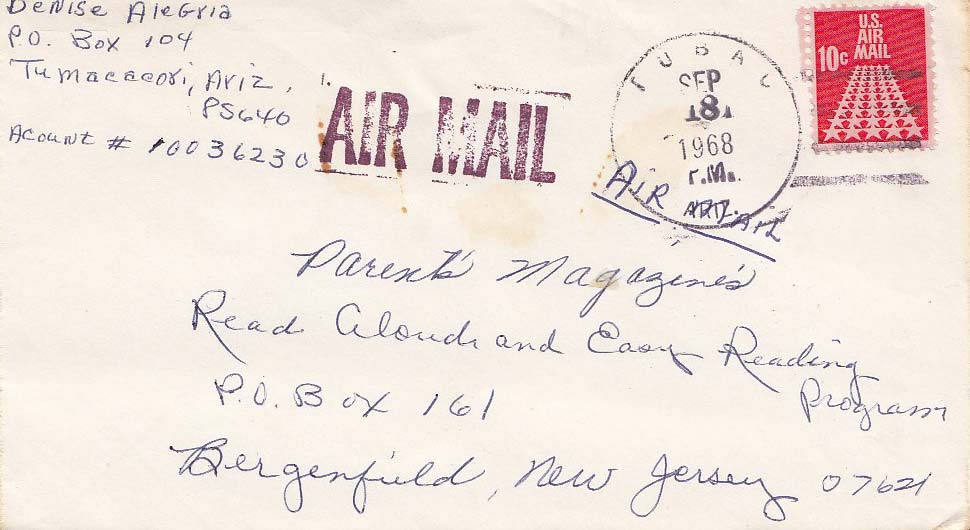 Denise Alegria
P.O. Box 104
Tumacacori, Ariz.
85640
Acount # 10036230
AIR MAIL
TUBAC
SEP
18
1968
P.M.
ARIZ.
U.S.
AIR
MAIL
10c
Air Mail
Parent's Magazine's
Read Aloud and Easy Reading
Program
P.O. Box 161
Bergenfield, New Jersey 07621